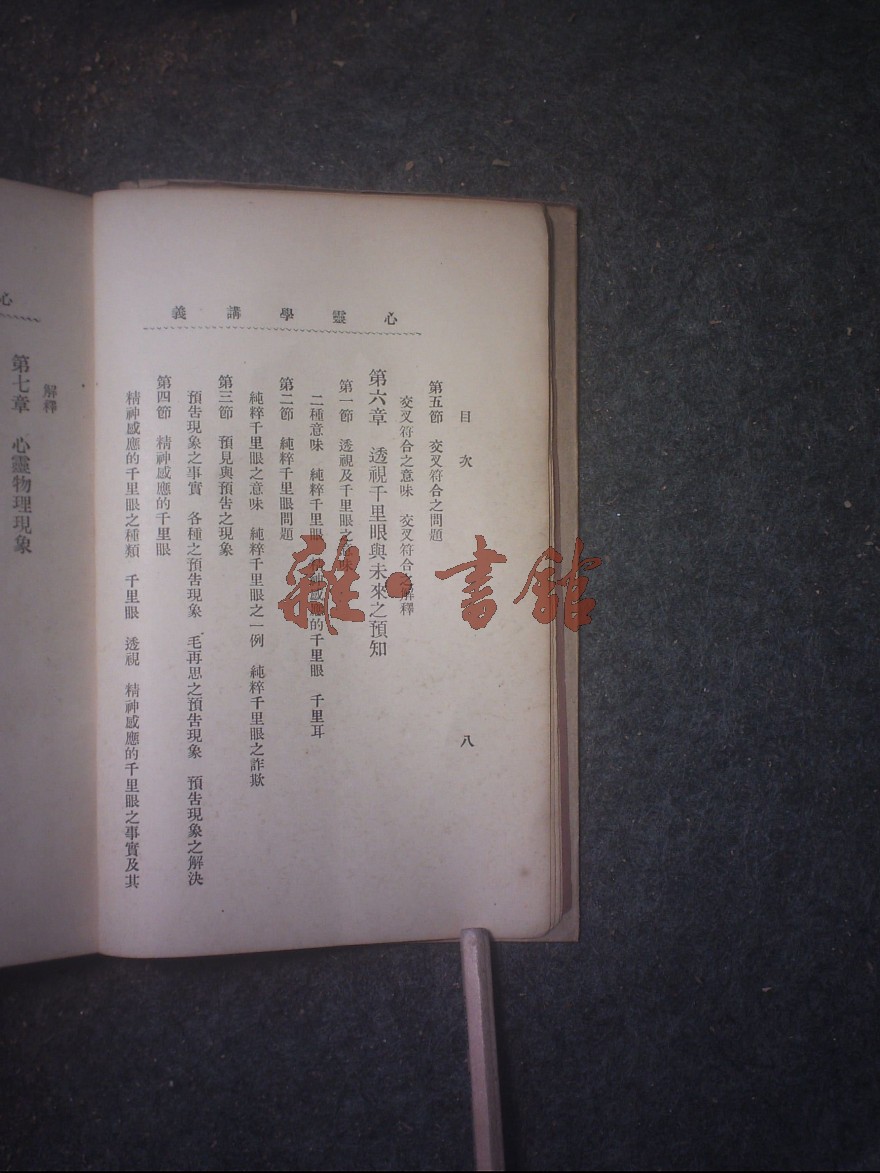 心靈學講義
目次
八
第五節 交叉符合之問題
交叉符合之意味 交叉符合之解釋
第六章 透視千里眼與未來之預知
第一節 透視及千里眼之意味
二種意味 純粹千里眼 感應的千里眼 千里耳
第二節 純粹千里眼問題
純粹千里眼之意味 純粹千里眼之一例 純粹千里眼之詐欺
第三節 預見與預告之現象
預告現象之事實 各種之預告現象 毛再思之預告現象 預告現象之解決
第四節 精神感應的千里眼
精神感應的千里眼之種類 千里眼 透視 精神感應的千里眼之事實及其
心
解釋
第七章 心靈物理現象
雜·書館